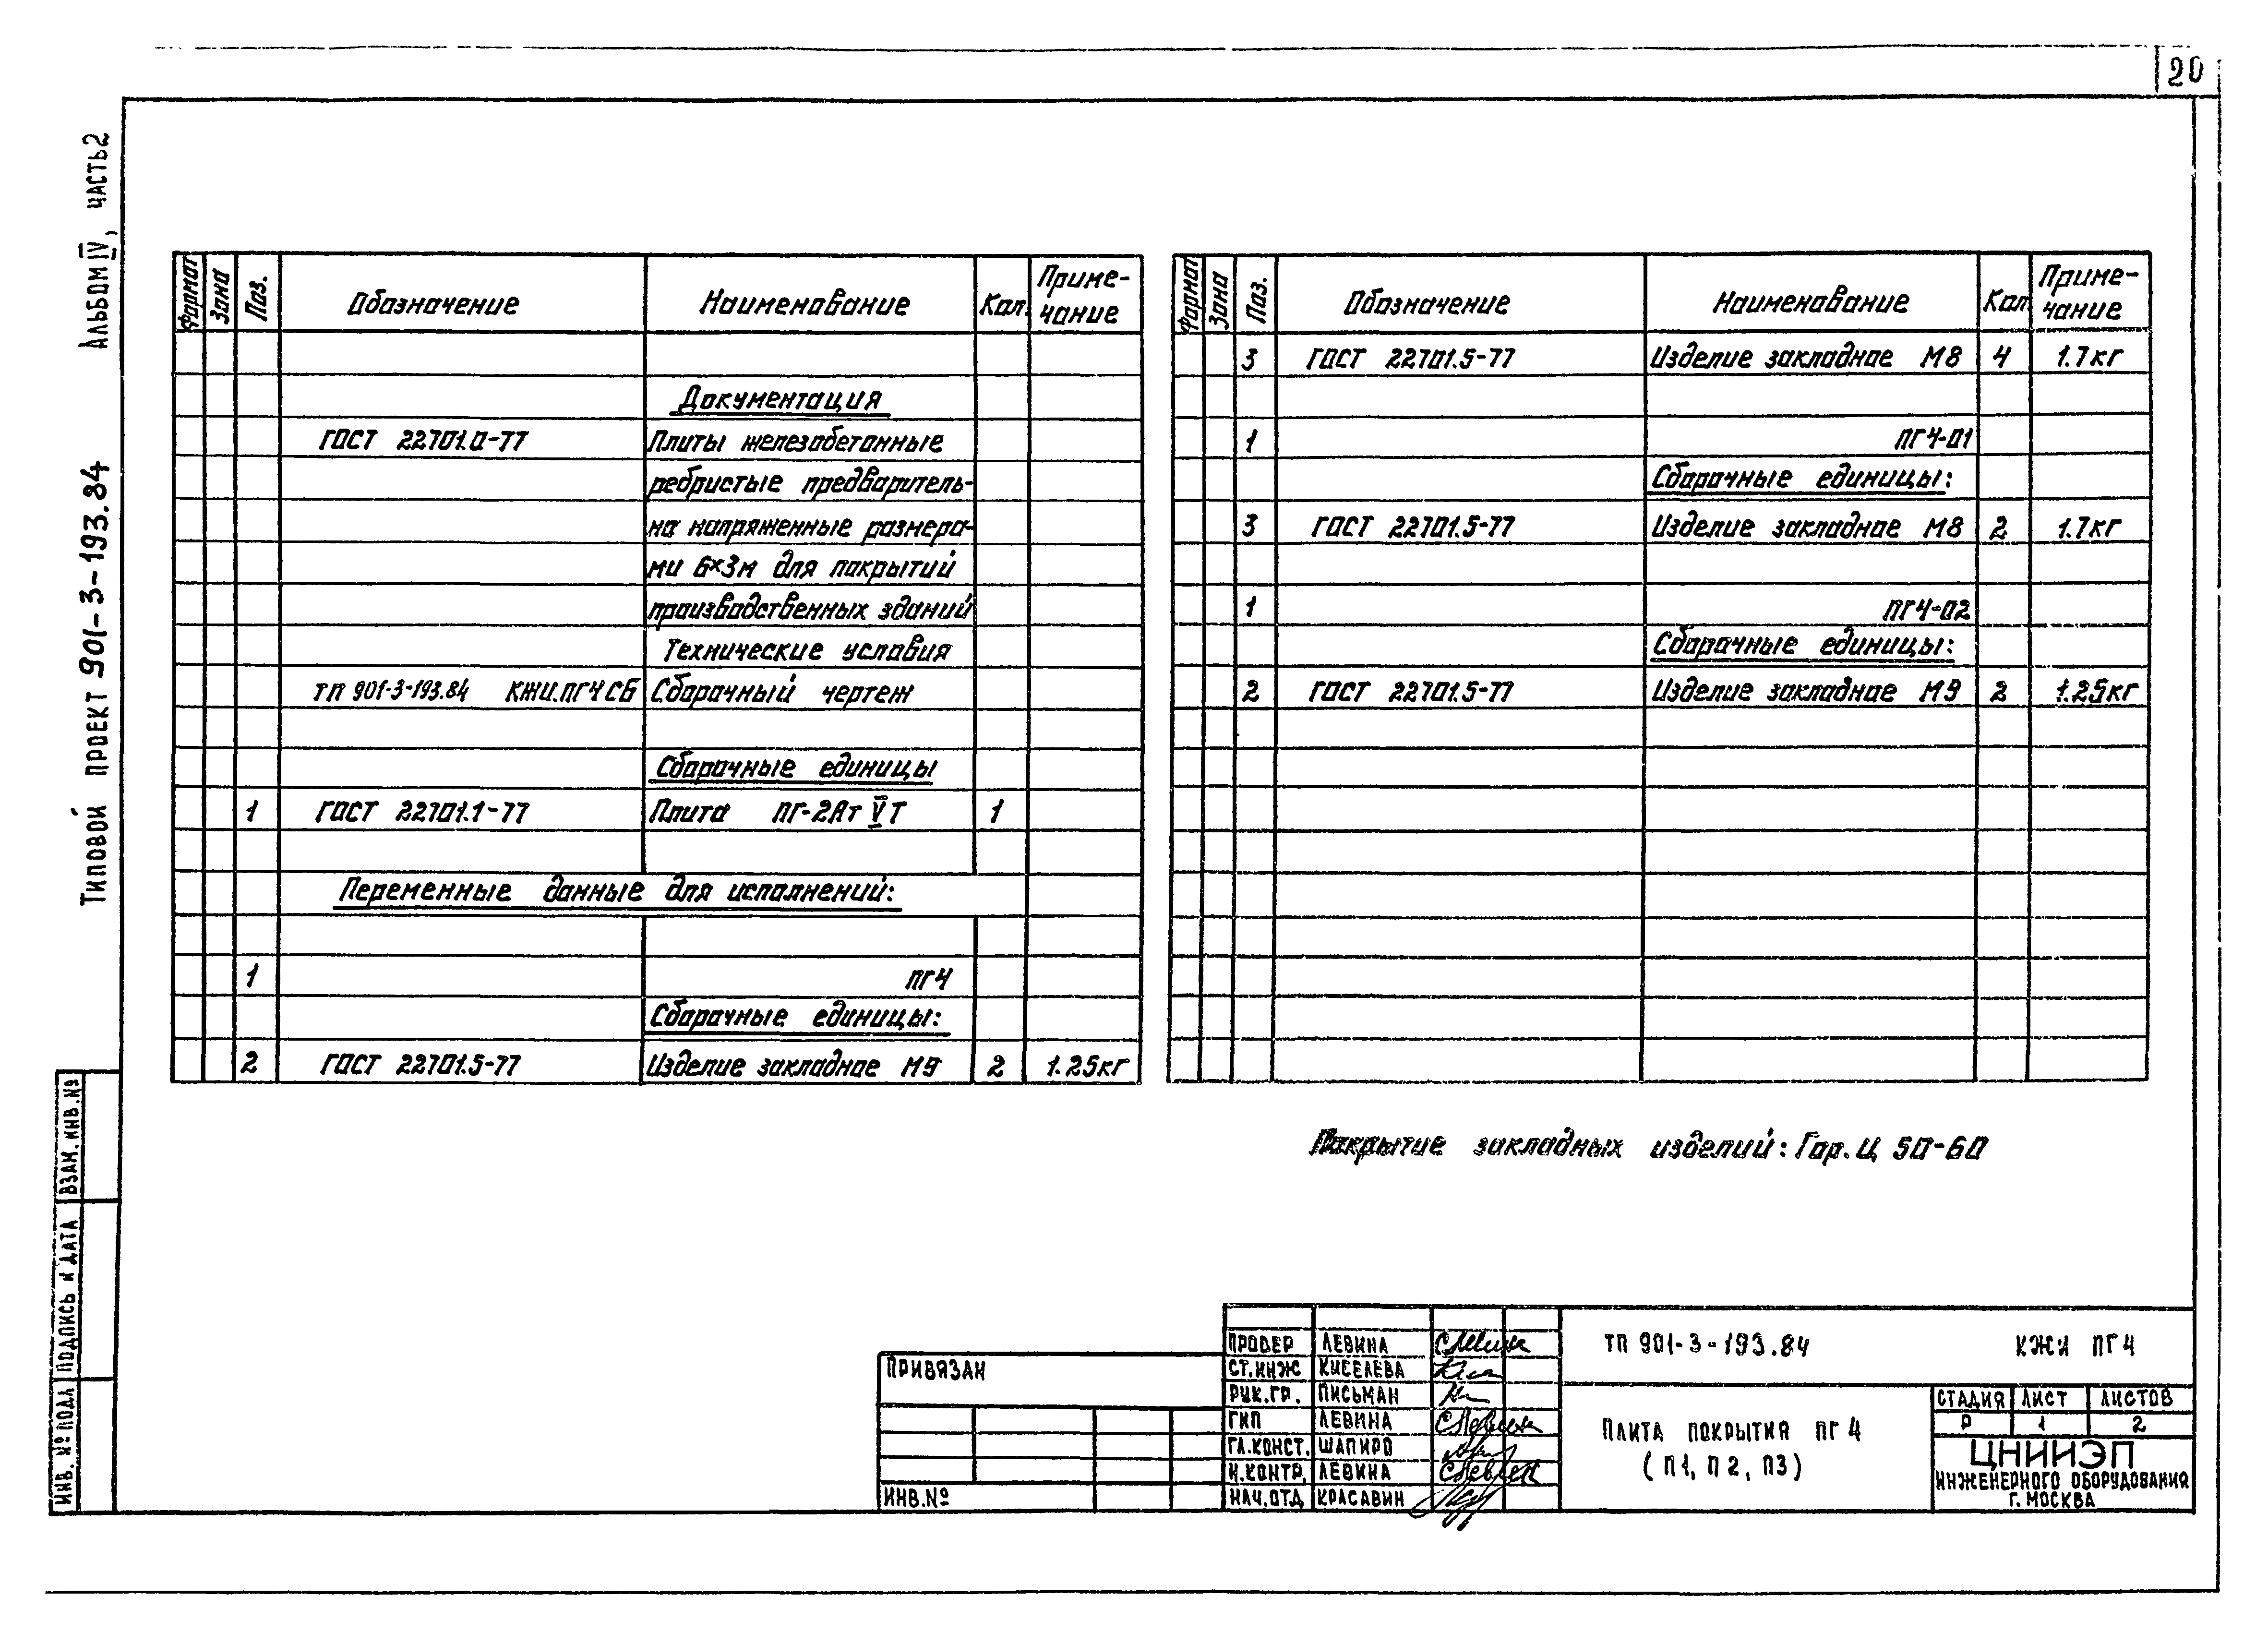 20
Альбом IV, часть 2
Типовой проект 901-3-193.84
Формат Зона Поз. Обозначение Наименование Кол. Приме-
чание
Документация
ГОСТ 22701.0-77 Плиты железобетонные
ребристые предваритель-
но напряженные размера-
ми 6×3м для покрытий
производственных зданий
Технические условия
ТП 901-3-193.84 КЖИ.ПГ4СБ Сборочный чертеж
Сборочные единицы
1 ГОСТ 22701.1-77 Плита ПГ-2Ат V Т 1
Переменные данные для исполнений:
1 ПГ4
Сборочные единицы:
2 ГОСТ 22701.5-77 Изделие закладное М9 2 1.25кг
Формат Зона Поз. Обозначение Наименование Кол. Приме-
чание
3 ГОСТ 22701.5-77 Изделие закладное М8 4 1.7кг
1 ПГ4-01
Сборочные единицы:
3 ГОСТ 22701.5-77 Изделие закладное М8 2 1.7кг
1 ПГ4-02
Сборочные единицы:
2 ГОСТ 22701.5-77 Изделие закладное М9 2 1.25кг
Покрытие закладных изделий: Гор. Ц 50-60
ИНВ. № ПОДЛ ПОДПИСЬ И ДАТА ВЗАМ. ИНВ. №
ПРИВЯЗАН
ИНВ.№
ПРОВЕР ЛЕВИНА
СТ.ИНЖ КИСЕЛЕВА
РУК.ГР. ПИСЬМАН
ГИП ЛЕВИНА
ГЛ.КОНСТ. ШАПИРО
Н.КОНТР. ЛЕВИНА
НАЧ.ОТД КРАСАВИН
ТП 901-3-193.84 КЖИ ПГ4
ПЛИТА ПОКРЫТИЯ ПГ4
(П1, П2, П3)
СТАДИЯ ЛИСТ ЛИСТОВ
Р 1 2
ЦНИИЭП
ИНЖЕНЕРНОГО ОБОРУДОВАНИЯ
Г. МОСКВА